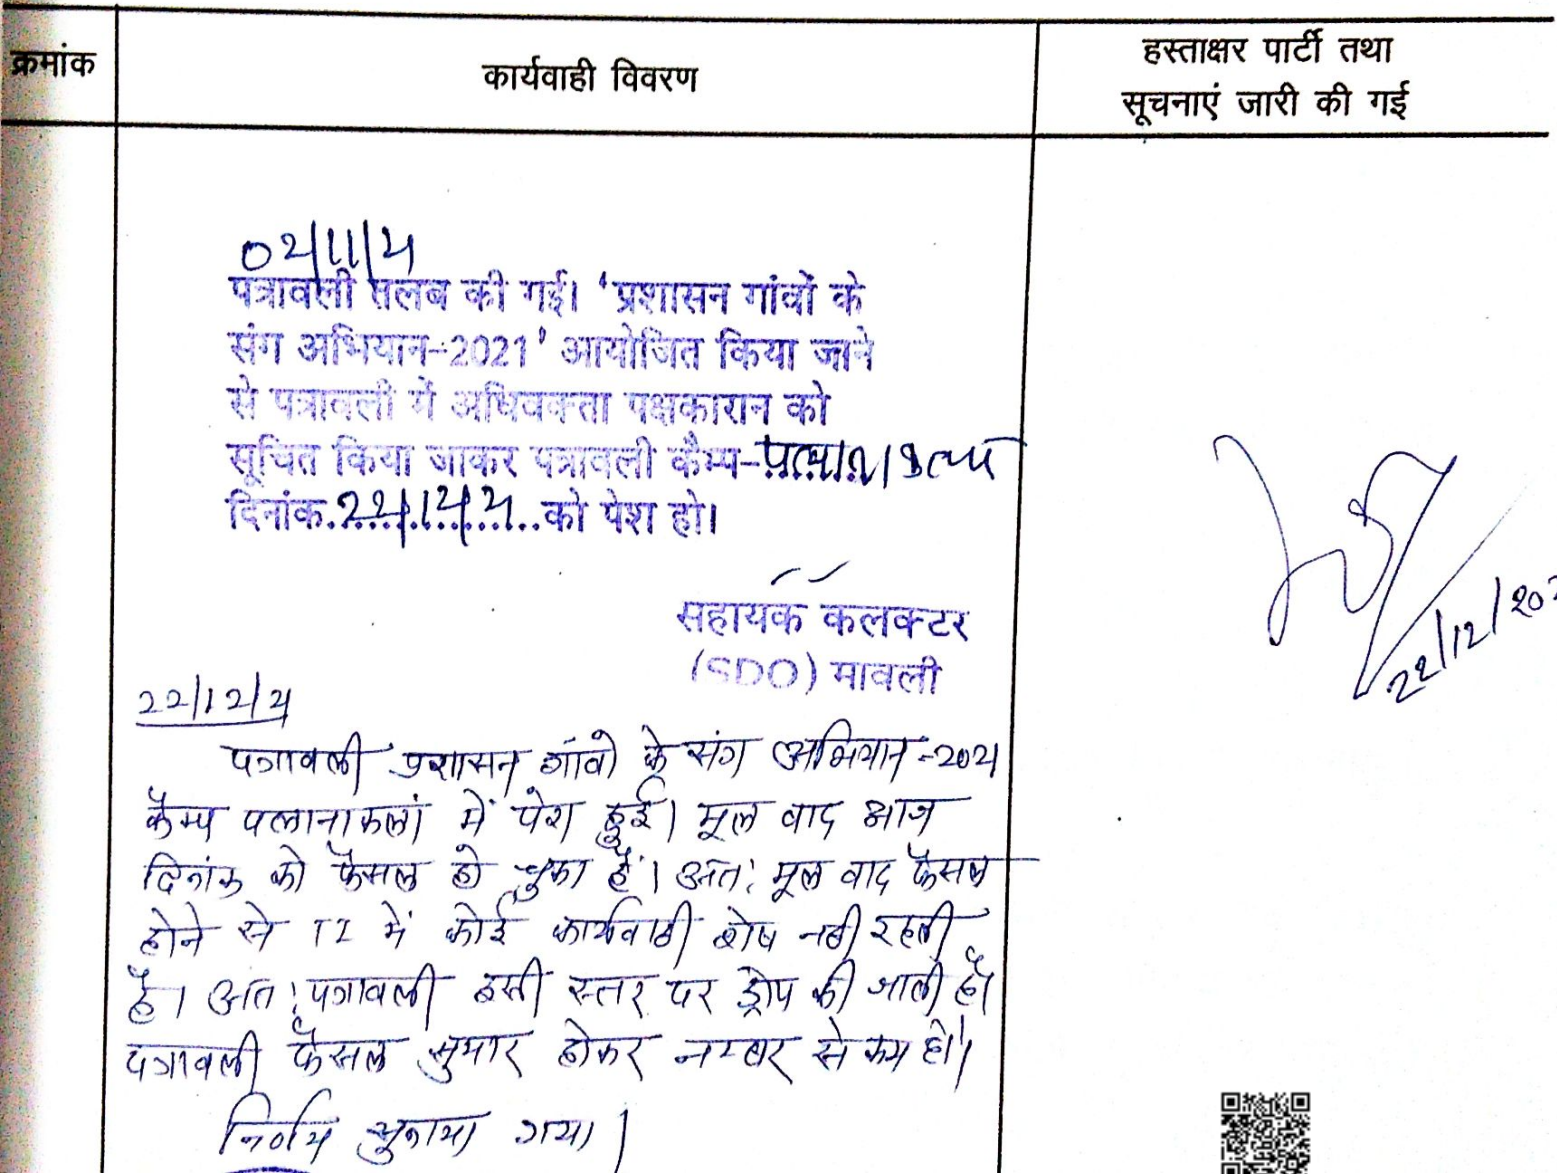 क्रमांक
कार्यवाही विवरण
हस्ताक्षर पार्टी तथा
सूचनाएं जारी की गई
02/11/21
पत्रावली तलब की गई। 'प्रशासन गांवों के
संग अभियान-2021' आयोजित किया जाने
से पत्रावली में अधिवक्ता पक्षकारान को
सूचित किया जाकर पत्रावली कैम्प-
दिनांक.22/12/21..को पेश हो।
सहायक कलक्टर
(SDO) मावली
22/12/20
22/12/21
पत्रावली प्रशासन गांवो के संग अभियान-2021
कैम्प पलानाकलां में पेश हुई। मूल वाद आज
दिनांक को फैसल हो चुका है। अतः मूल वाद फैसल
होने से TI में कोई कार्यवाही शेष नही रहती
है। अतः पत्रावली इसी स्तर पर ड्रोप की जाती है।
पत्रावली फैसल सुमार होकर नम्बर से कम हो।
निर्णय सुनाया गया।